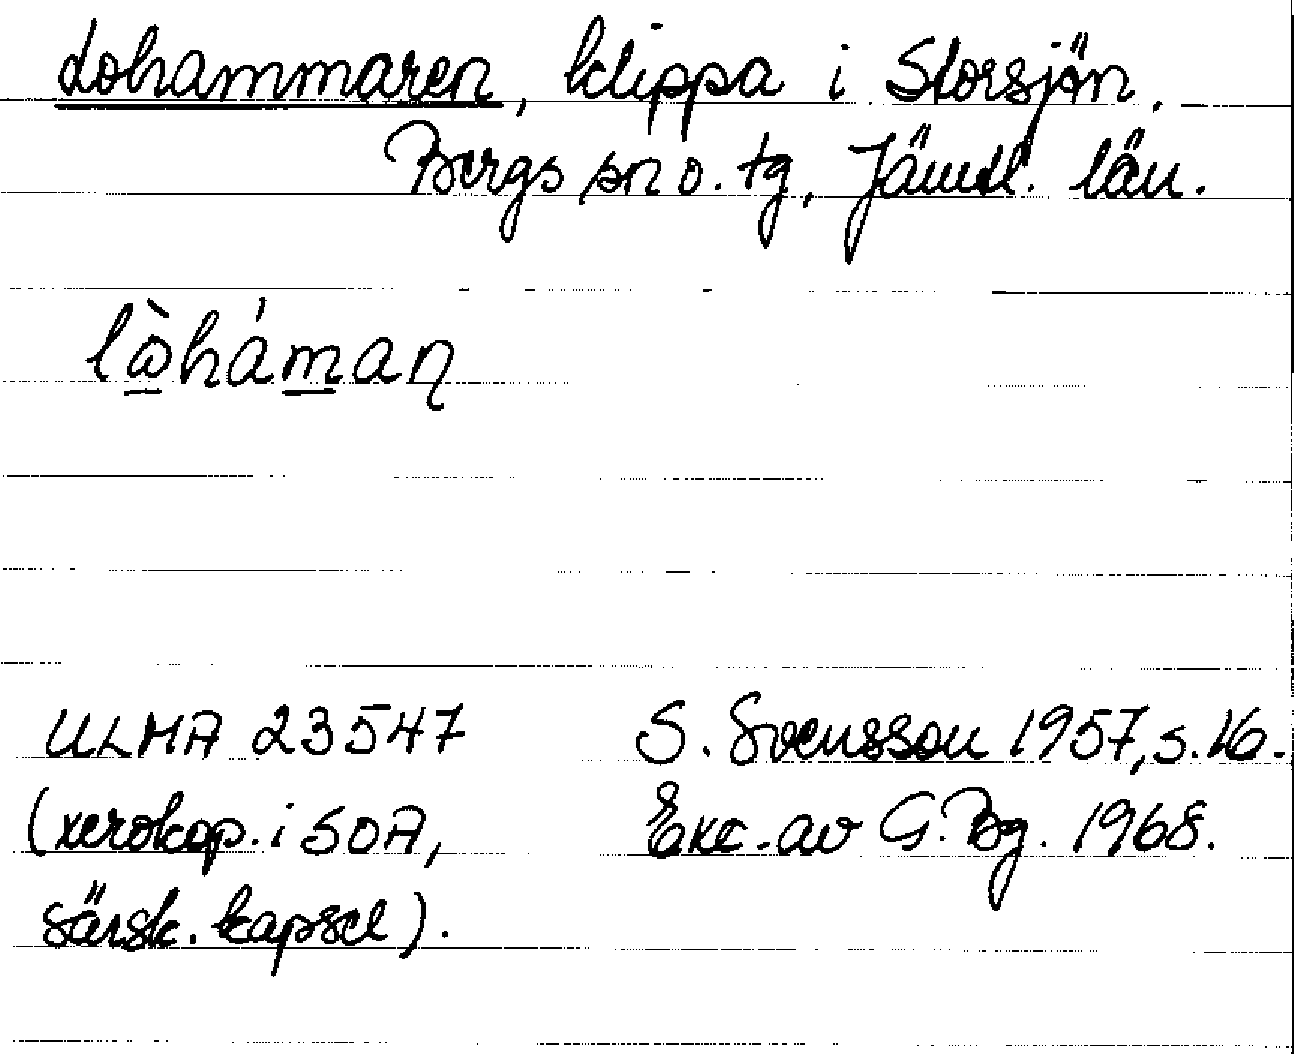 Lohammaren, klippa i Storsjön.
Bergs sn o. tg, Jämtl. län.
lòháman
ULMA 23547
(xerokop. i SOA,
särsk. kapsel).
S. Svensson 1957, s. 16.
Exc. av G. Bg. 1968.